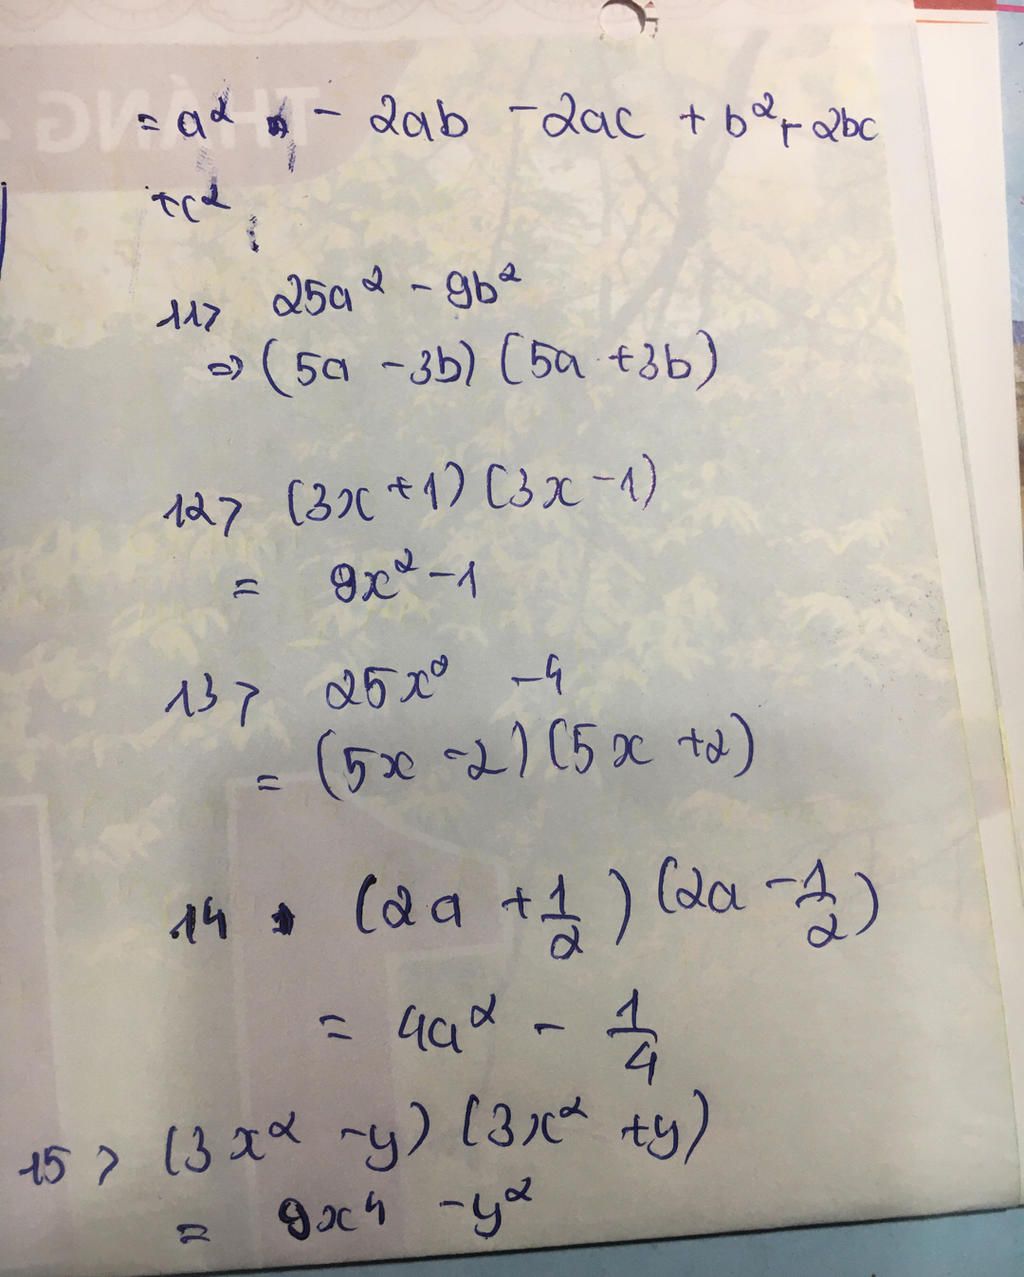 THÁNG
= a² - 2ab - 2ac + b² + 2bc
+c²
11> 25a² - 9b²
=> (5a - 3b) (5a + 3b)
12> (3x + 1) (3x - 1)
= 9x² - 1
13> 25x² - 4
= (5x - 2) (5x + 2)
14 (2a + 1/2) (2a - 1/2)
= 4a² - 1/4
15> (3x² - y) (3x² + y)
= 9x⁴ - y²